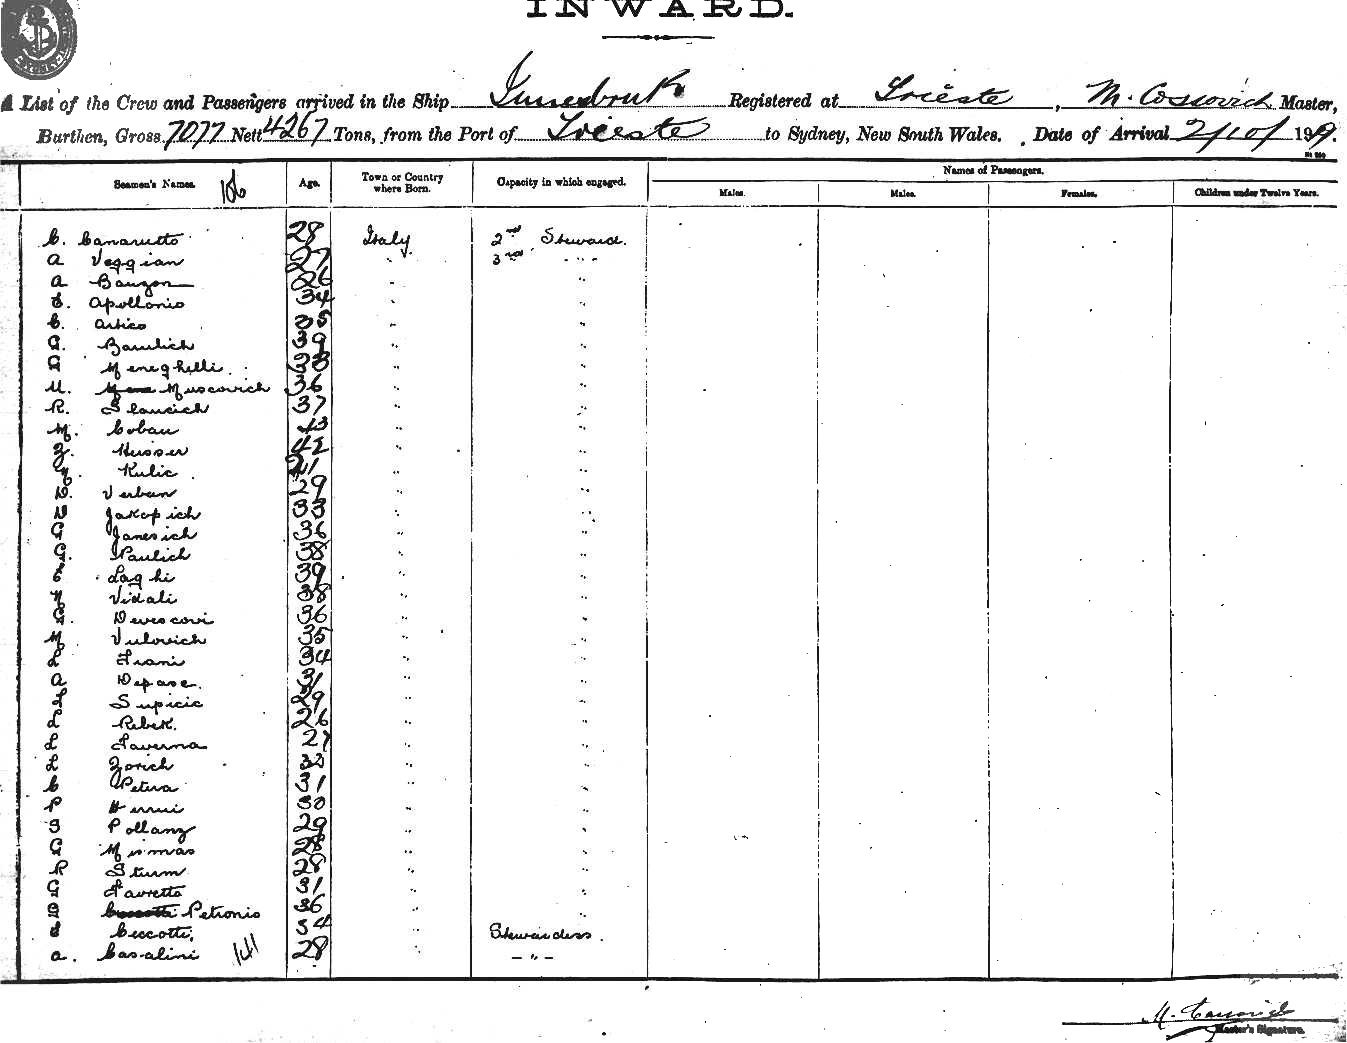 INWARD.
A List of the Crew and Passengers arrived in the Ship Innsbruck Registered at Trieste, M. Cossovich Master,
Burthen, Gross 7077 Nett 4267 Tons, from the Port of Trieste to Sydney, New South Wales. Date of Arrival 2/10/1919.
Seamen's Names. Age. Town or Country where Born. Capacity in which engaged. Names of Passengers.
Males. Males. Females. Children under Twelve Years.
C. Canarutto 28 Italy 2nd Steward.
A Veggian 27 " 3rd "
A Bauzon 26 " "
Apollonio 34 " "
C. Artico 35 " "
G. Baulich 39 " "
G Meneghelli 38 " "
U. Muscovich 36 " "
R. Slaucich 37 " "
M. Coban 43 " "
Z. Husser 42 " "
Kulic 21 " "
D. Verban 29 " "
D Jakopich 33 " "
G Janesich 36 " "
G. Paulich 38 " "
E Laghi 39 " "
Vidali 38 " "
G. Devescovi 36 " "
M Vulovich 35 " "
L Triani 34 " "
A Depase. 31 " "
Supicic 29 " "
L Ribek. 26 " "
L Taverna 27 " "
L Zorich 32 " "
C Petira 31 " "
P 30 " "
S Pollanz 29 " "
G Mismas 28 " "
R Sturm 28 " "
G Favretto 31 " "
Petronio 36 " "
Ceccotti, 34 " Stewardess.
A. Casalini 28 " "
M. Cossovich
Master's Signature.